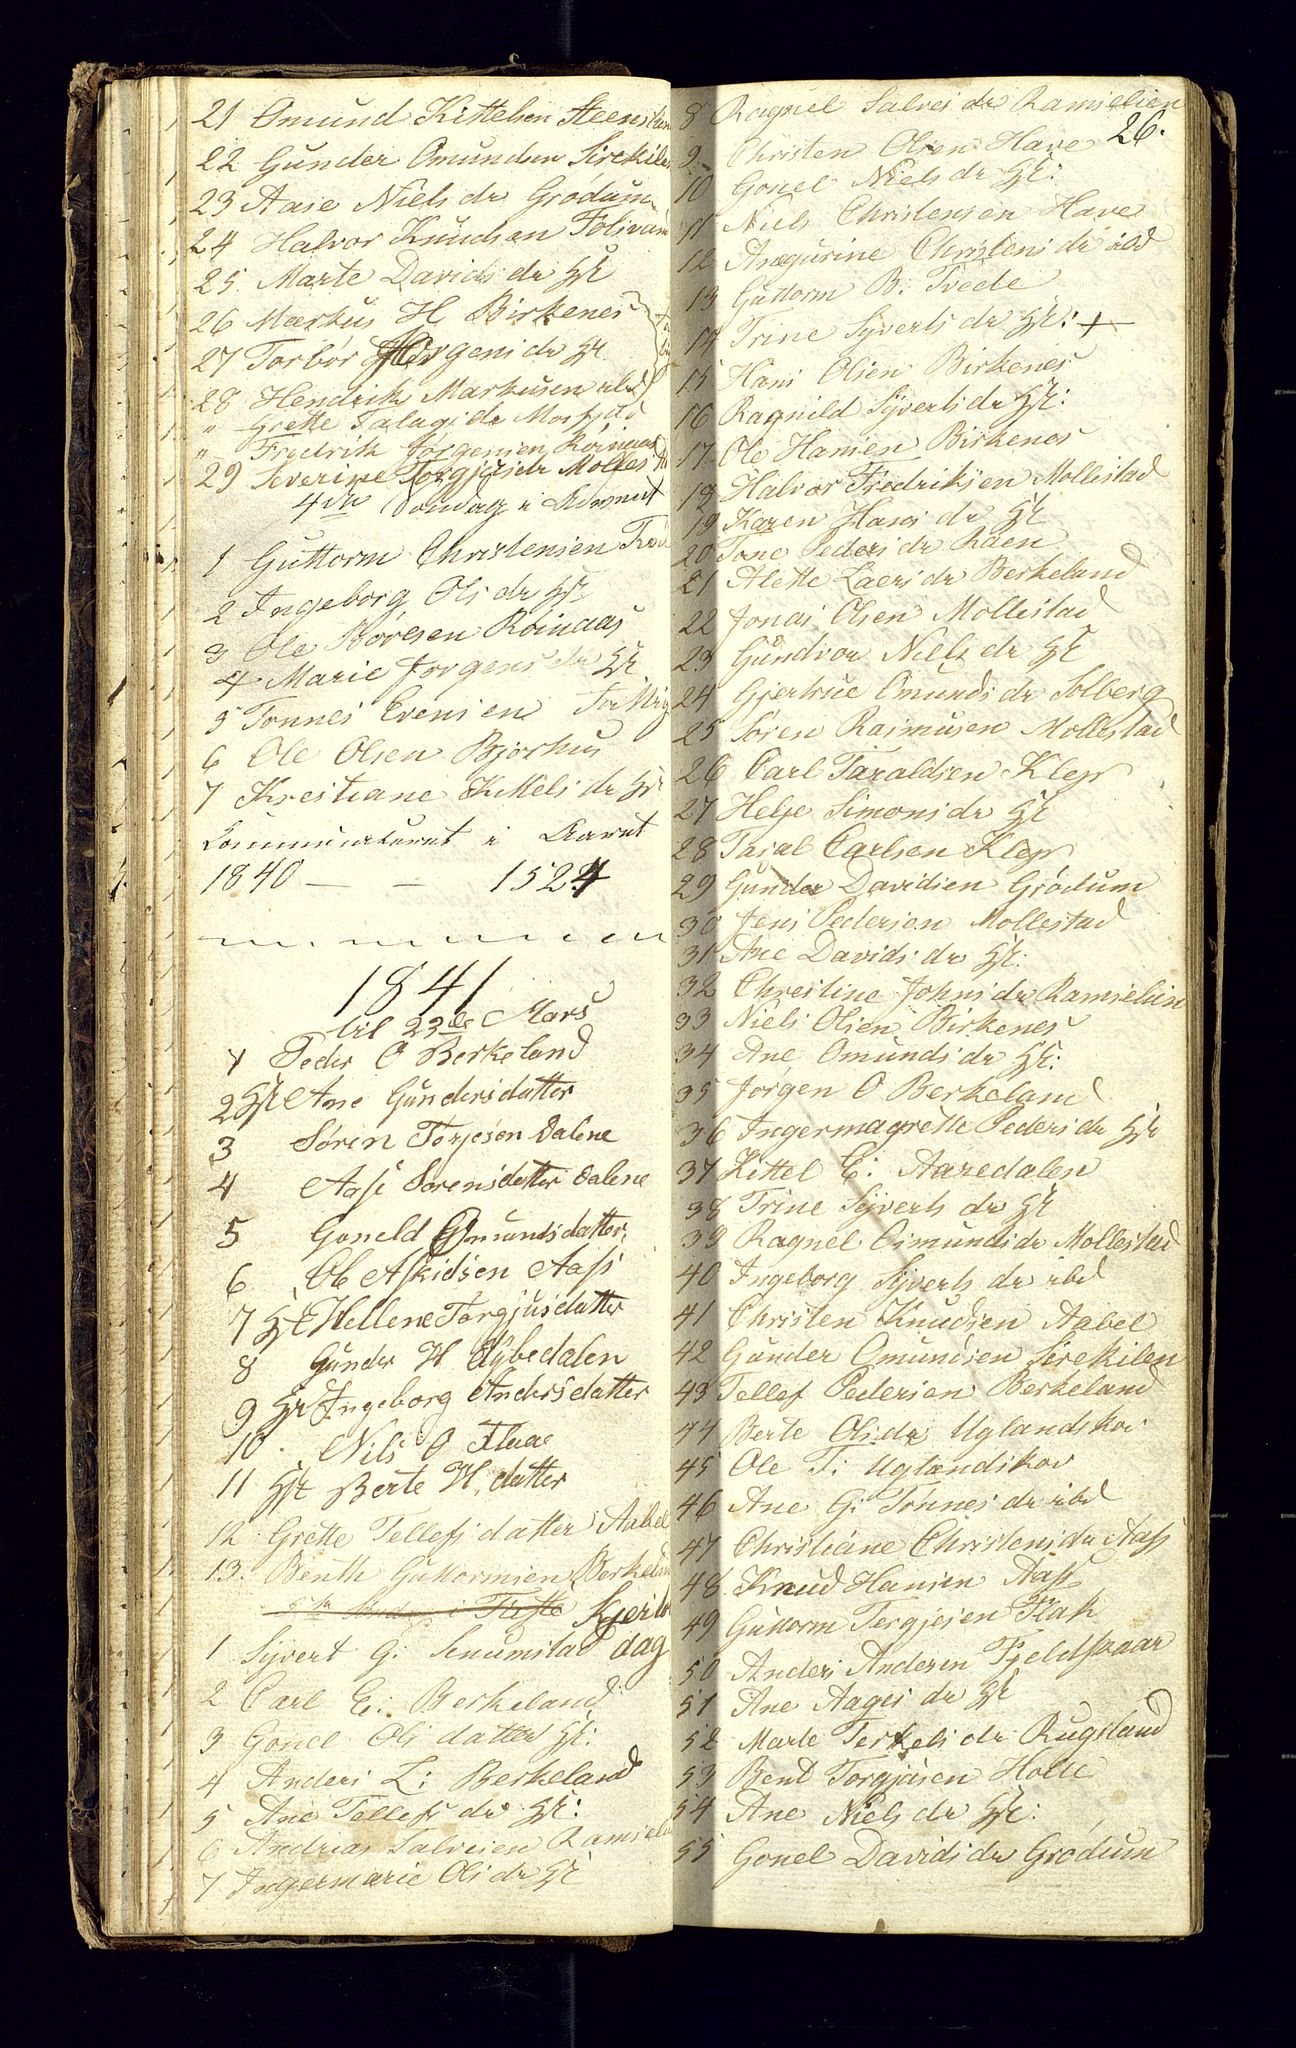 21 Omund Kittelsen Steens
22 Gunder Omundsen Sirekilen
23 Aase Niels dr Grödum
24 Halvor Knudsen
25 Marte Davids dr Hst
26 Markus H Birkenes
27 Torbör Jörgens dr Hst
28 Hendrik Markusen ibd
" Grette dr
" Fredrik Jørgensen Röinaas
29 Severine Torgjus dr Molles
4de Söndag i Advent
1 Guttorm Christensen
2 Ingeborg Ols dr Hst
3 Ole Börresen Röinaas
4 Marie Jørgens dr Hst
5 Tönnes Evensen
6 Ole Olsen Bjorhus
7 Krestiane Kittels dr Hst
Communiceret i Aaret
1840 — — 1524
1841
til 23de Mars
1 Peder O Berkeland
2 Hst Ane Gundersdatter
3 Sören Terjesen Dalene
4 Aase Sørensdatter Dalene
5 Goneld Omundsdatter
6 Ole Askidsen Aass
7 Hst Hellene Torgjusdatter
8 Gunder H. Dybedalen
9 Hst Ingeborg Andersdatter
10 Nils O Flaae
11 Hst Berte H. datter
12 Grette Tellefs datter Aabel
13. Benth Guttormsen Berkeland
Söndag i Faste Skjertors
dag
1 Syvert G. Senumstad
2 Carl E: Berkeland
3 Gonel Ols datter Hst:
4 Anders L: Berkeland
5 Ane Tellefs dr Hst:
6 Andreas Salvesen Ramselien
7 Ingermarie Ols dr Hst
26.
8 Ragnel Salves dr Ramselien
9 Christen Olsen Have
10 Gonel Niels dr Hst:
11 Niels Christensen Have
12 Anegurine Christens dr ibd
13 Guttorm B: Tvede
14 Trine Syverts dr Hst: +
15 Hans Olsen Birkenes
16 Ragnild Syverts dr Hst:
17 Ole Hansen Birkenes
18 Halvor Fredriksen Mollestad
19 Karen Hans dr Hst
20 Tone Peders dr Raen
21 Alette Laers dr Berkeland
22 Jonas Olsen Mollestad
23 Gundvor Niels dr Hst
24 Gjertrue Omunds dr Solberg
25 Sören Rasmusen Mollestad
26 Carl Taraldsen Klep
27 Helje Simons dr Hst
28 Taral Carlsen Klep
29 Gunder Davidsen Grödum
30 Jens Pedersen Mollestad
31 Ane Davids dr Hst:
32 Chrestine Johns dr Ramselien
33 Niels Olsen Birkenes
34 Ane Omunds dr Hst:
35 Jørgen O Berkeland
36 Ingermagrette Peders dr Hst
37 Kittel E: Aaredalen
38 Trine Syverts dr Hst
39 Ragnel Osmunds dr Mollestad
40 Ingeborg Syverts dr ibd
41 Christen Knudsen Aabel
42 Gunder Omundsen Sirekilen
43 Tellef Pedersen Berkeland
44 Berte Ols dr Uglandskov
45 Ole T: Uglandskov
46 Ane G: Tönnes dr ibd
47 Christiane Christens dr Aass
48 Knud Hansen Aass
49 Guttorm Tergjesen Flak
50 Anders Andersen Fjeldsvaar
51 Ane Aages dr Hst
52 Marte Terkels dr Rugsland
53 Bent Torgjusen Holte
54 Ane Niels dr Hst:
55 Gonel Davids dr Grödum